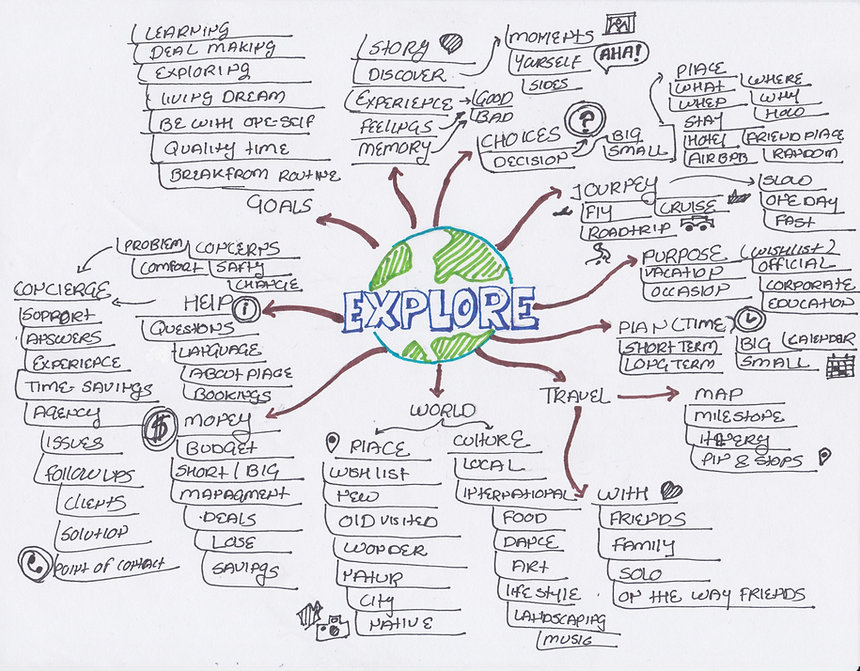 LEARNING
DEAL MAKING
EXPLORING
LIVING DREAM
BE WITH ONE-SELF
QUALITY TIME
BREAK FROM ROUTINE
GOALS
STORY
DISCOVER
EXPERIENCE
FEELINGS
MEMORY
GOOD
BAD
MOMENTS
YOURSELF
SIDES
AHA!
CHOICES
?
DECISION
BIG
SMALL
PLACE
WHAT
WHEN
WHERE
WHY
STAY
HOTEL
FRIEND PLACE
AIRBNB
RANDOM
JOURNEY
FLY
CRUISE
ROADTRIP
SLOW
ONE DAY
FAST
PURPOSE (WISHLIST)
VACATION
OCCASION
OFFICIAL
CORPORATE
EDUCATION
PLAN (TIME)
SHORT TERM
LONG TERM
BIG (CALENDER
SMALL
EXPLORE
TRAVEL
MAP
MILESTONE
PIN & STOPS
WITH
FRIENDS
FAMILY
SOLO
ON THE WAY FRIENDS
WORLD
PLACE
WISH LIST
NEW
OLD VISITED
WONDER
NATUR
CITY
NATIVE
CULTURE
LOCAL
INTERNATIONAL
FOOD
DANCE
ART
LIFE STYLE
LANDSCAPING
MUSIC
$
MONEY
BUDGET
SHORT / BIG
MANAGMENT
DEALS
LOSE
SAVINGS
HELP
i
QUESTIONS
LANGUAGE
ABOUT PLACE
BOOKINGS
PROBLEM
CONCERNS
COMFORT
SAFTY
CHANGE
CONCIERGE
SUPPORT
ANSWERS
EXPERIENCE
TIME SAVINGS
AGENCY
ISSUES
FOLLOW UPS
CLIENTS
SOLUTION
POINT OF CONTACT